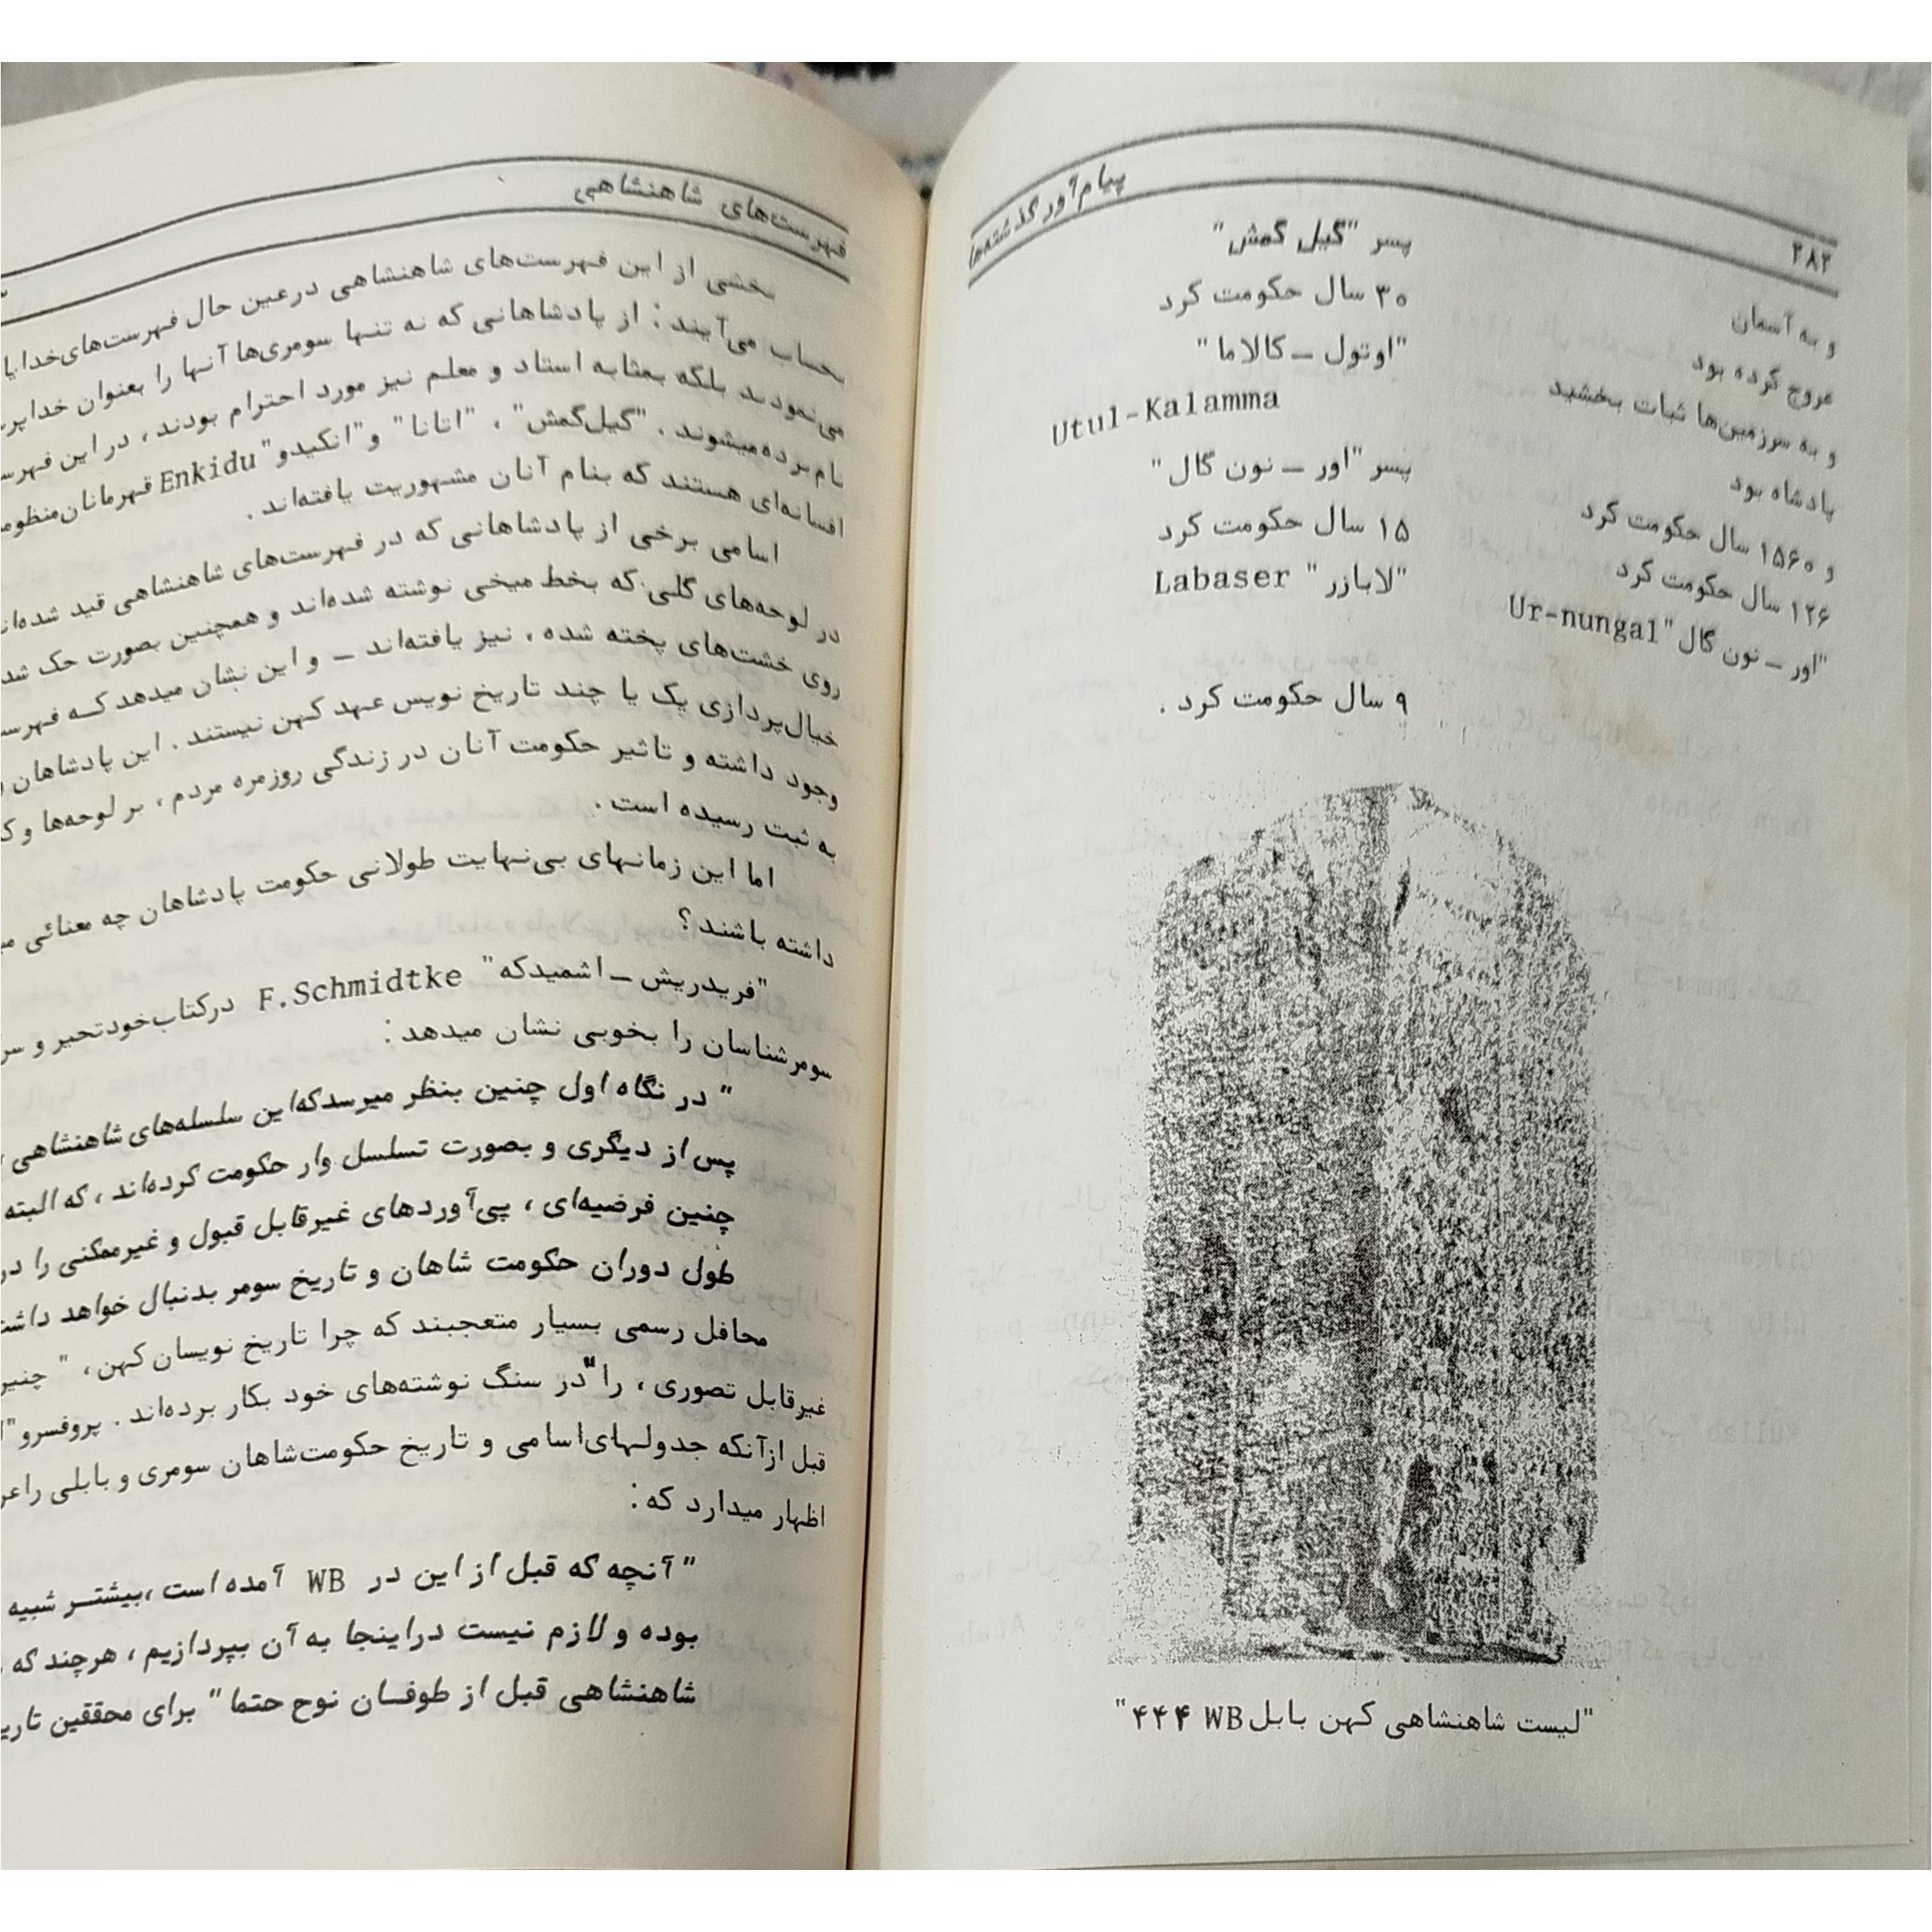 ۲۸۲
پیام‌آور گذشته‌ها
و به آسمان
عروج کرده بود
و به سرزمین‌ها ثبات بخشید
پادشاه بود
و ۱۵۶۰ سال حکومت کرد
۱۲۶ سال حکومت کرد
"اور ــ نون گال" Ur-nungal
پسر "گیل گمش"
۳۰ سال حکومت کرد
"اوتول ــ کالاما"
Utul-Kalamma
پسر "اور ــ نون گال"
۱۵ سال حکومت کرد
"لابازر" Labaser
۹ سال حکومت کرد .
"لیست شاهنشاهی کهن بابل WB ۴۴۴"
فهرست‌های شاهنشاهی
بخشی از این فهرست‌های شاهنشاهی درعین حال فهرست‌های
بحساب می‌آیند : از پادشاهانی که نه تنها سومری‌ها آنها را بعنوان
می‌نمودند بلکه بمثابه استاد و معلم نیز مورد احترام بودند ، در این
نام برده میشوند . "گیل‌گمش" ، "اتانا" و "انکیدو" Enkidu قهرمانان
افسانه‌ای هستند که بنام آنان مشهوریت یافته‌اند .
اسامی برخی از پادشاهانی که در فهرست‌های شاهنشاهی قید
در لوحه‌های گلی که بخط میخی نوشته شده‌اند و همچنین بصورت حک
روی خشت‌های پخته شده ، نیز یافته‌اند ــ و این نشان میدهد کـه
خیال‌پردازی یک یا چند تاریخ نویس عهد کهن نیستند . این پادشاهان
وجود داشته و تاثیر حکومت آنان در زندگی روزمره مردم ، بر لوحه‌ها و
به ثبت رسیده است .
اما این زمانهای بی‌نهایت طولانی حکومت پادشاهان چه معنائی
داشته باشند ؟
"فریدریش ــ اشمیدکه" F.Schmidtke درکتاب خود تحیر و
سومرشناسان را بخوبی نشان میدهد :
" در نگاه اول چنین بنظر میرسدکه این سلسله‌های شاهنشاهی
پس از دیگری و بصورت تسلسل وار حکومت کرده‌اند ، که البته
چنین فرضیه‌ای ، پی‌آوردهای غیرقابل قبول و غیرممکنی را در
طول دوران حکومت شاهان و تاریخ سومر بدنبال خواهد
محافل رسمی بسیار متعجبند که چرا تاریخ نویسان کهن ، "
غیرقابل تصوری ، را" در سنگ نوشته‌های خود بکار برده‌اند . پروفسرو
قبل ازآنکه جدولهای اسامی و تاریخ حکومت‌شاهان سومری و بابلی را
اظهار میدارد که :
" آنچه که قبل از این در WB آمده است ، بیشتـر شبیه
بوده و لازم نیست دراینجا به آن بپردازیم ، هرچند که
شاهنشاهی قبل از طوفـان نوح حتما " برای محققین